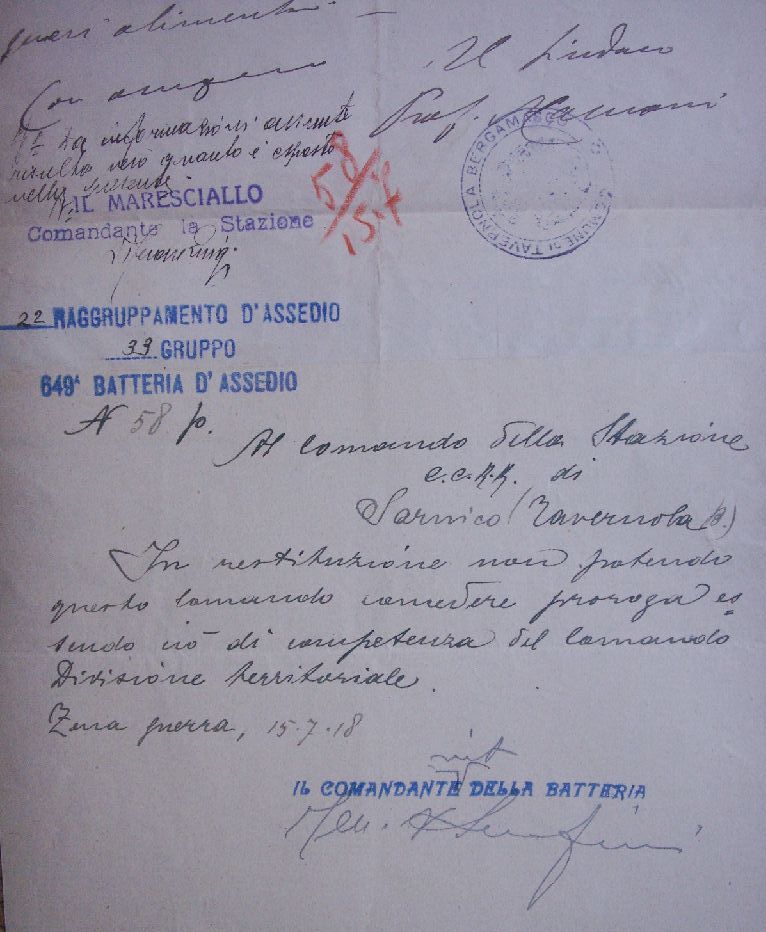 generi alimentari.
Con
Il Sindaco
Prof.
Da informazioni assunte
risulta vero quanto è esposto
nella
IL MARESCIALLO
Comandante la Stazione
58/15-7
COMUNE DI TAVERNOLA BERGAMASCO
22 RAGGRUPPAMENTO D'ASSEDIO
33 GRUPPO
649ª BATTERIA D'ASSEDIO
N 58 p.
Al Comando della Stazione
C.C.R.R. di
Sarnico (Tavernola B.)
In restituzione non potendo
questo Comando concedere proroga es
sendo ciò di competenza del Comando
Divisione territoriale.
Zona guerra, 15-7-18
IL COMANDANTE DELLA BATTERIA
Serafini